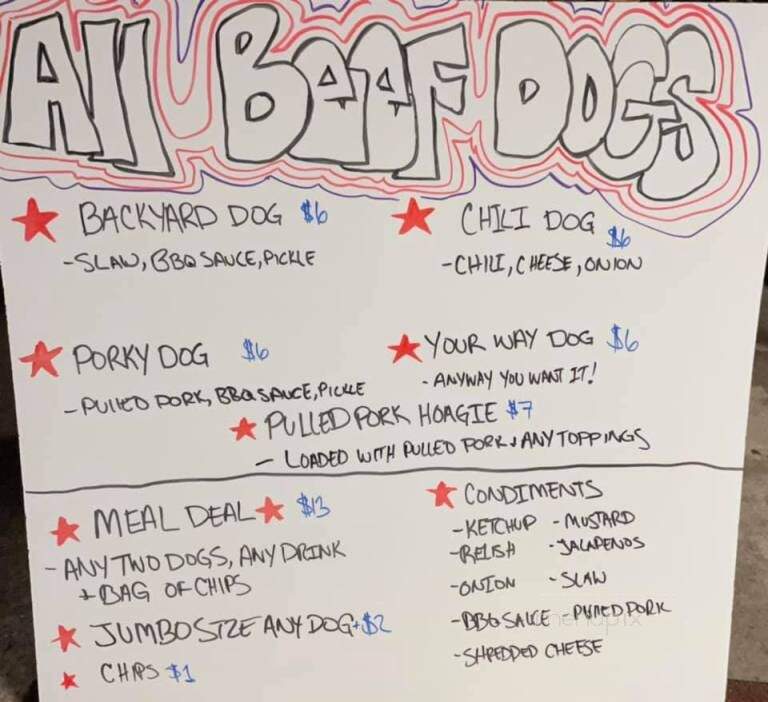 All Beef DOGS
BACKYARD DOG $6
-SLAW, BBQ SAUCE, PICKLE
CHILI DOG $6
-CHILI, CHEESE, ONION
PORKY DOG $6
-PULLED PORK, BBQ SAUCE, PICKLE
YOUR WAY DOG $6
-ANYWAY YOU WANT IT!
PULLED PORK HOAGIE $7
- LOADED WITH PULLED PORK + ANY TOPPINGS
MEAL DEAL $13
-ANY TWO DOGS, ANY DRINK
+ BAG OF CHIPS
JUMBO SIZE ANY DOG +$2
CHIPS $1
CONDIMENTS
-KETCHUP -MUSTARD
-RELISH -JALAPENOS
-ONION -SLAW
-BBQ SAUCE -PULLED PORK
-SHREDDED CHEESE